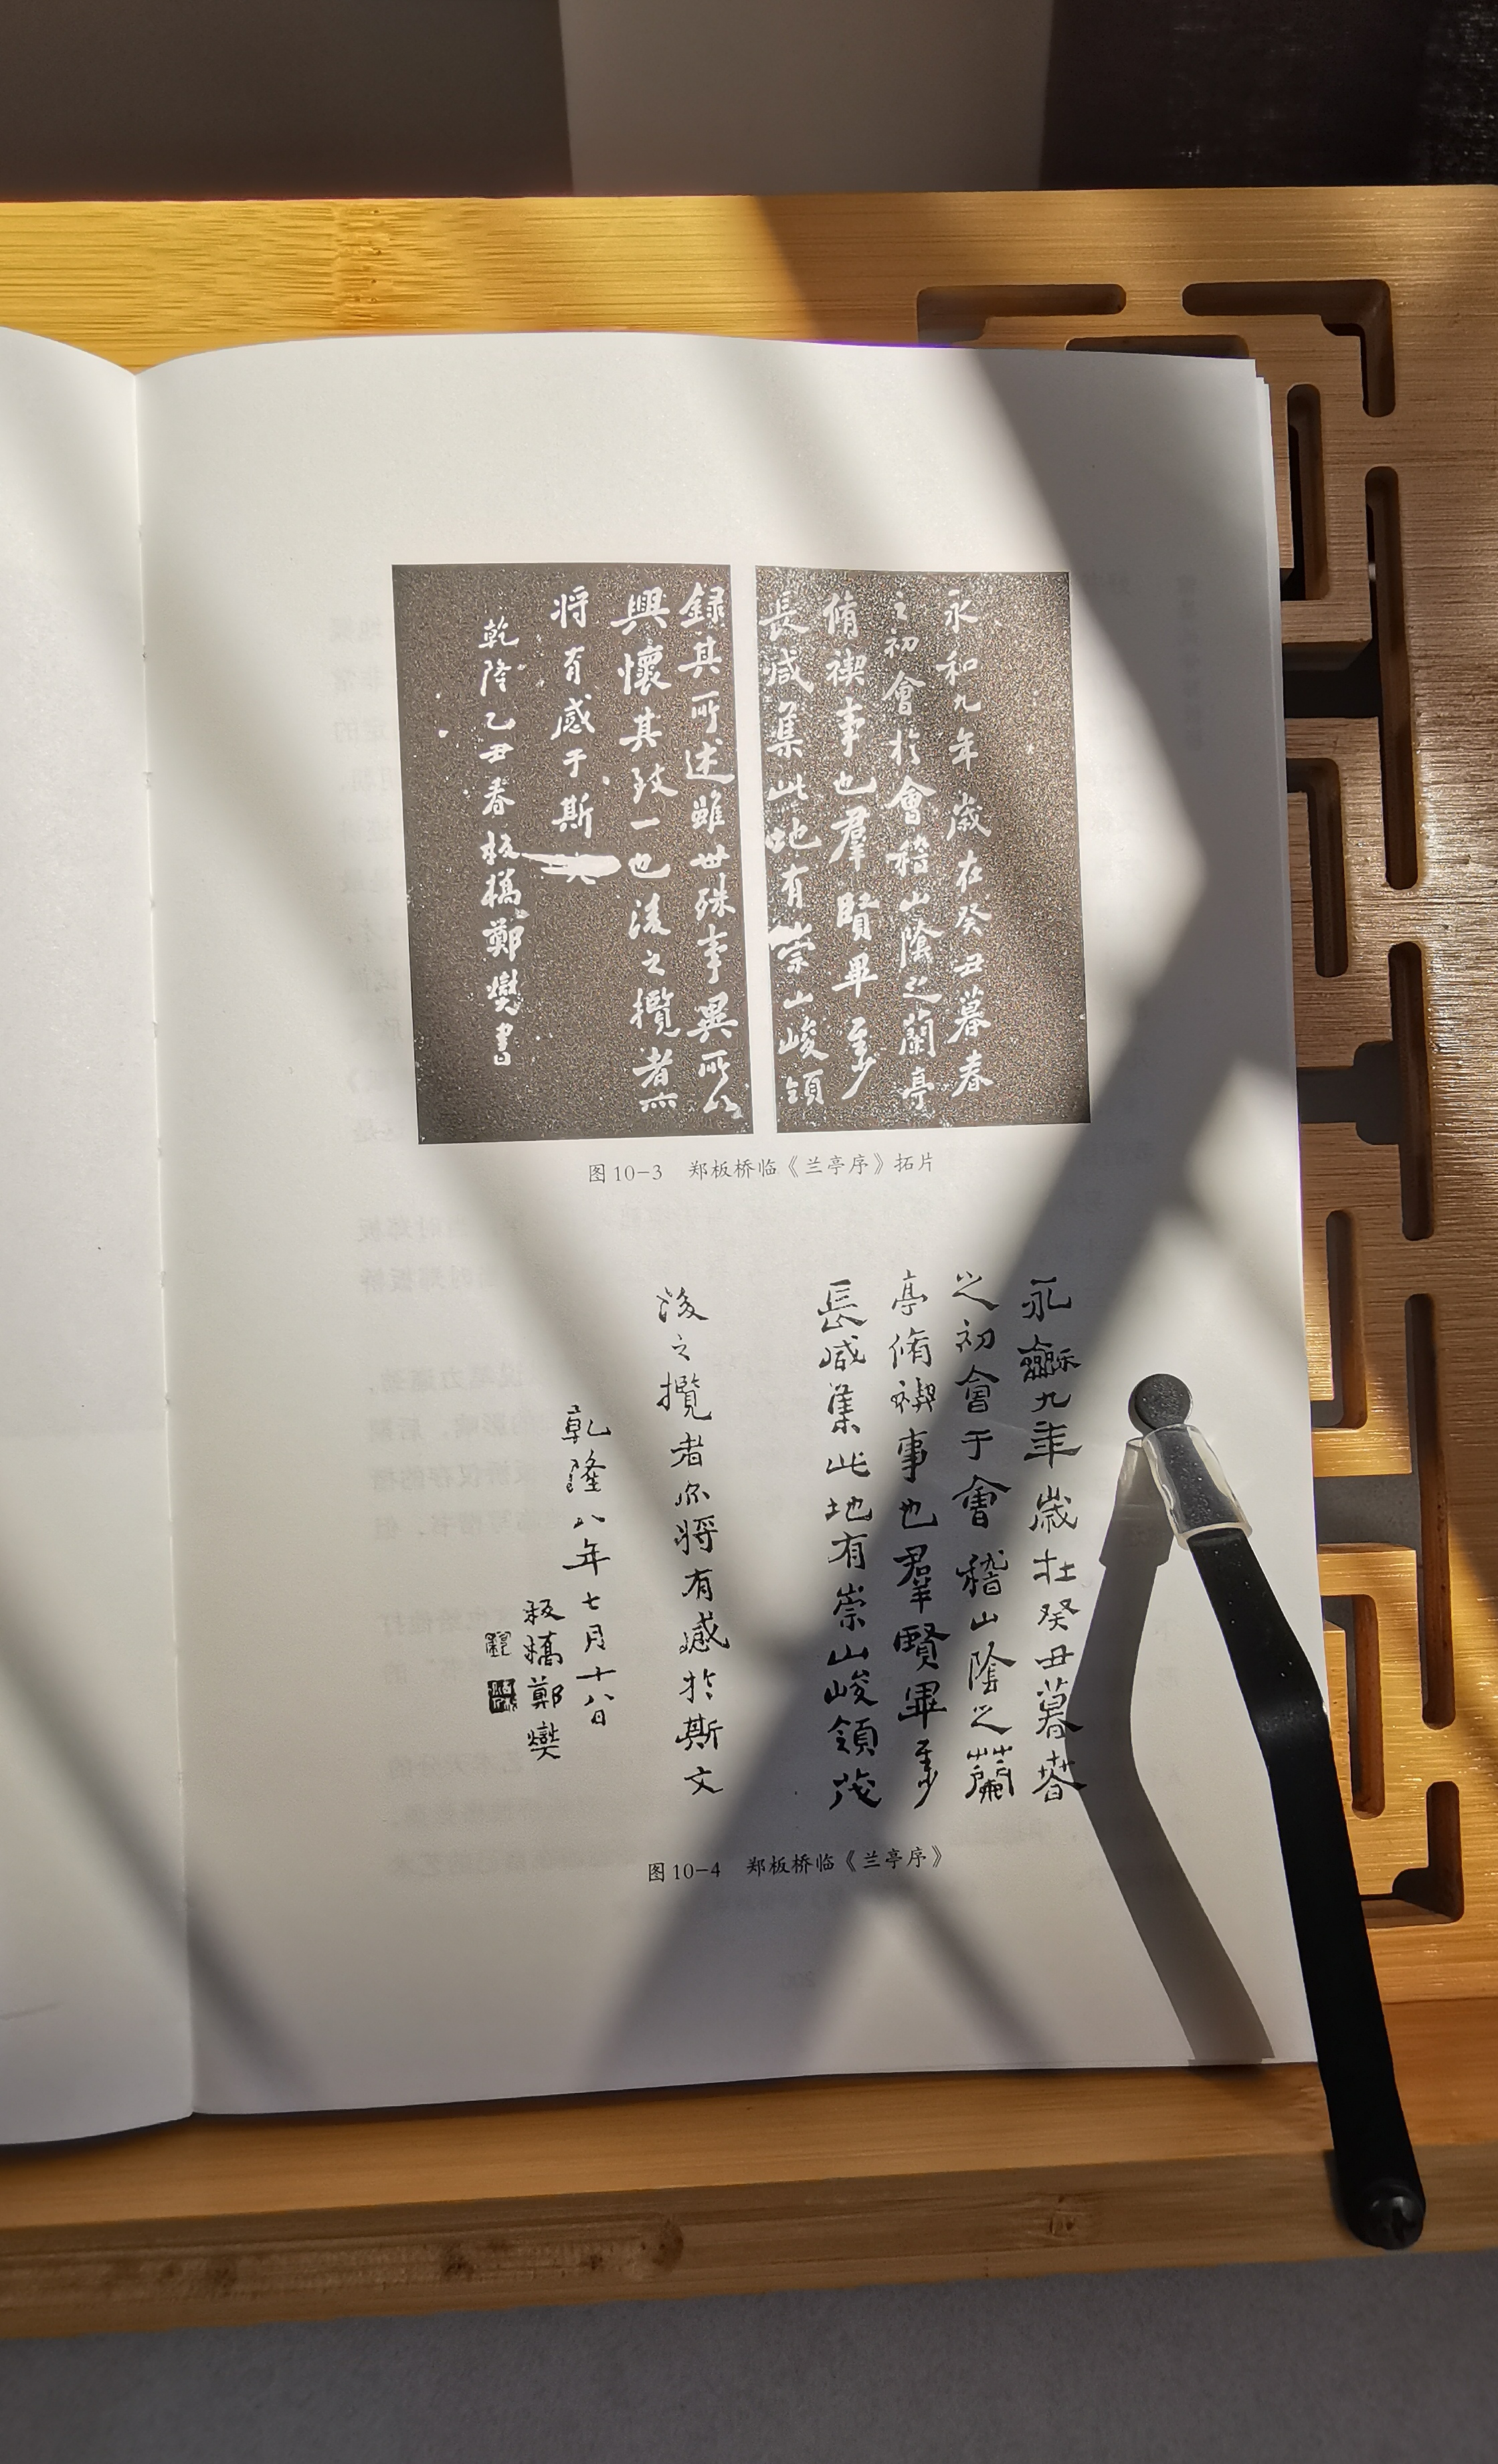 永和九年歲在癸丑暮春
之初會於會稽山陰之蘭亭
脩禊事也羣賢畢至少
長咸集此地有崇山峻領
録其所述雖世殊事異所以
興懷其致一也後之攬者亦
將有感于斯
乾隆乙丑春板橋鄭燮書
图10-3 郑板桥临《兰亭序》拓片
永龢九年歲在癸丑暮春
之初會于會稽山陰之蘭
亭脩禊事也羣賢畢至少
長咸集此地有崇山峻領茂
後之攬者亦將有感於斯文
乾隆八年七月十八日
板橋鄭燮
图10-4 郑板桥临《兰亭序》